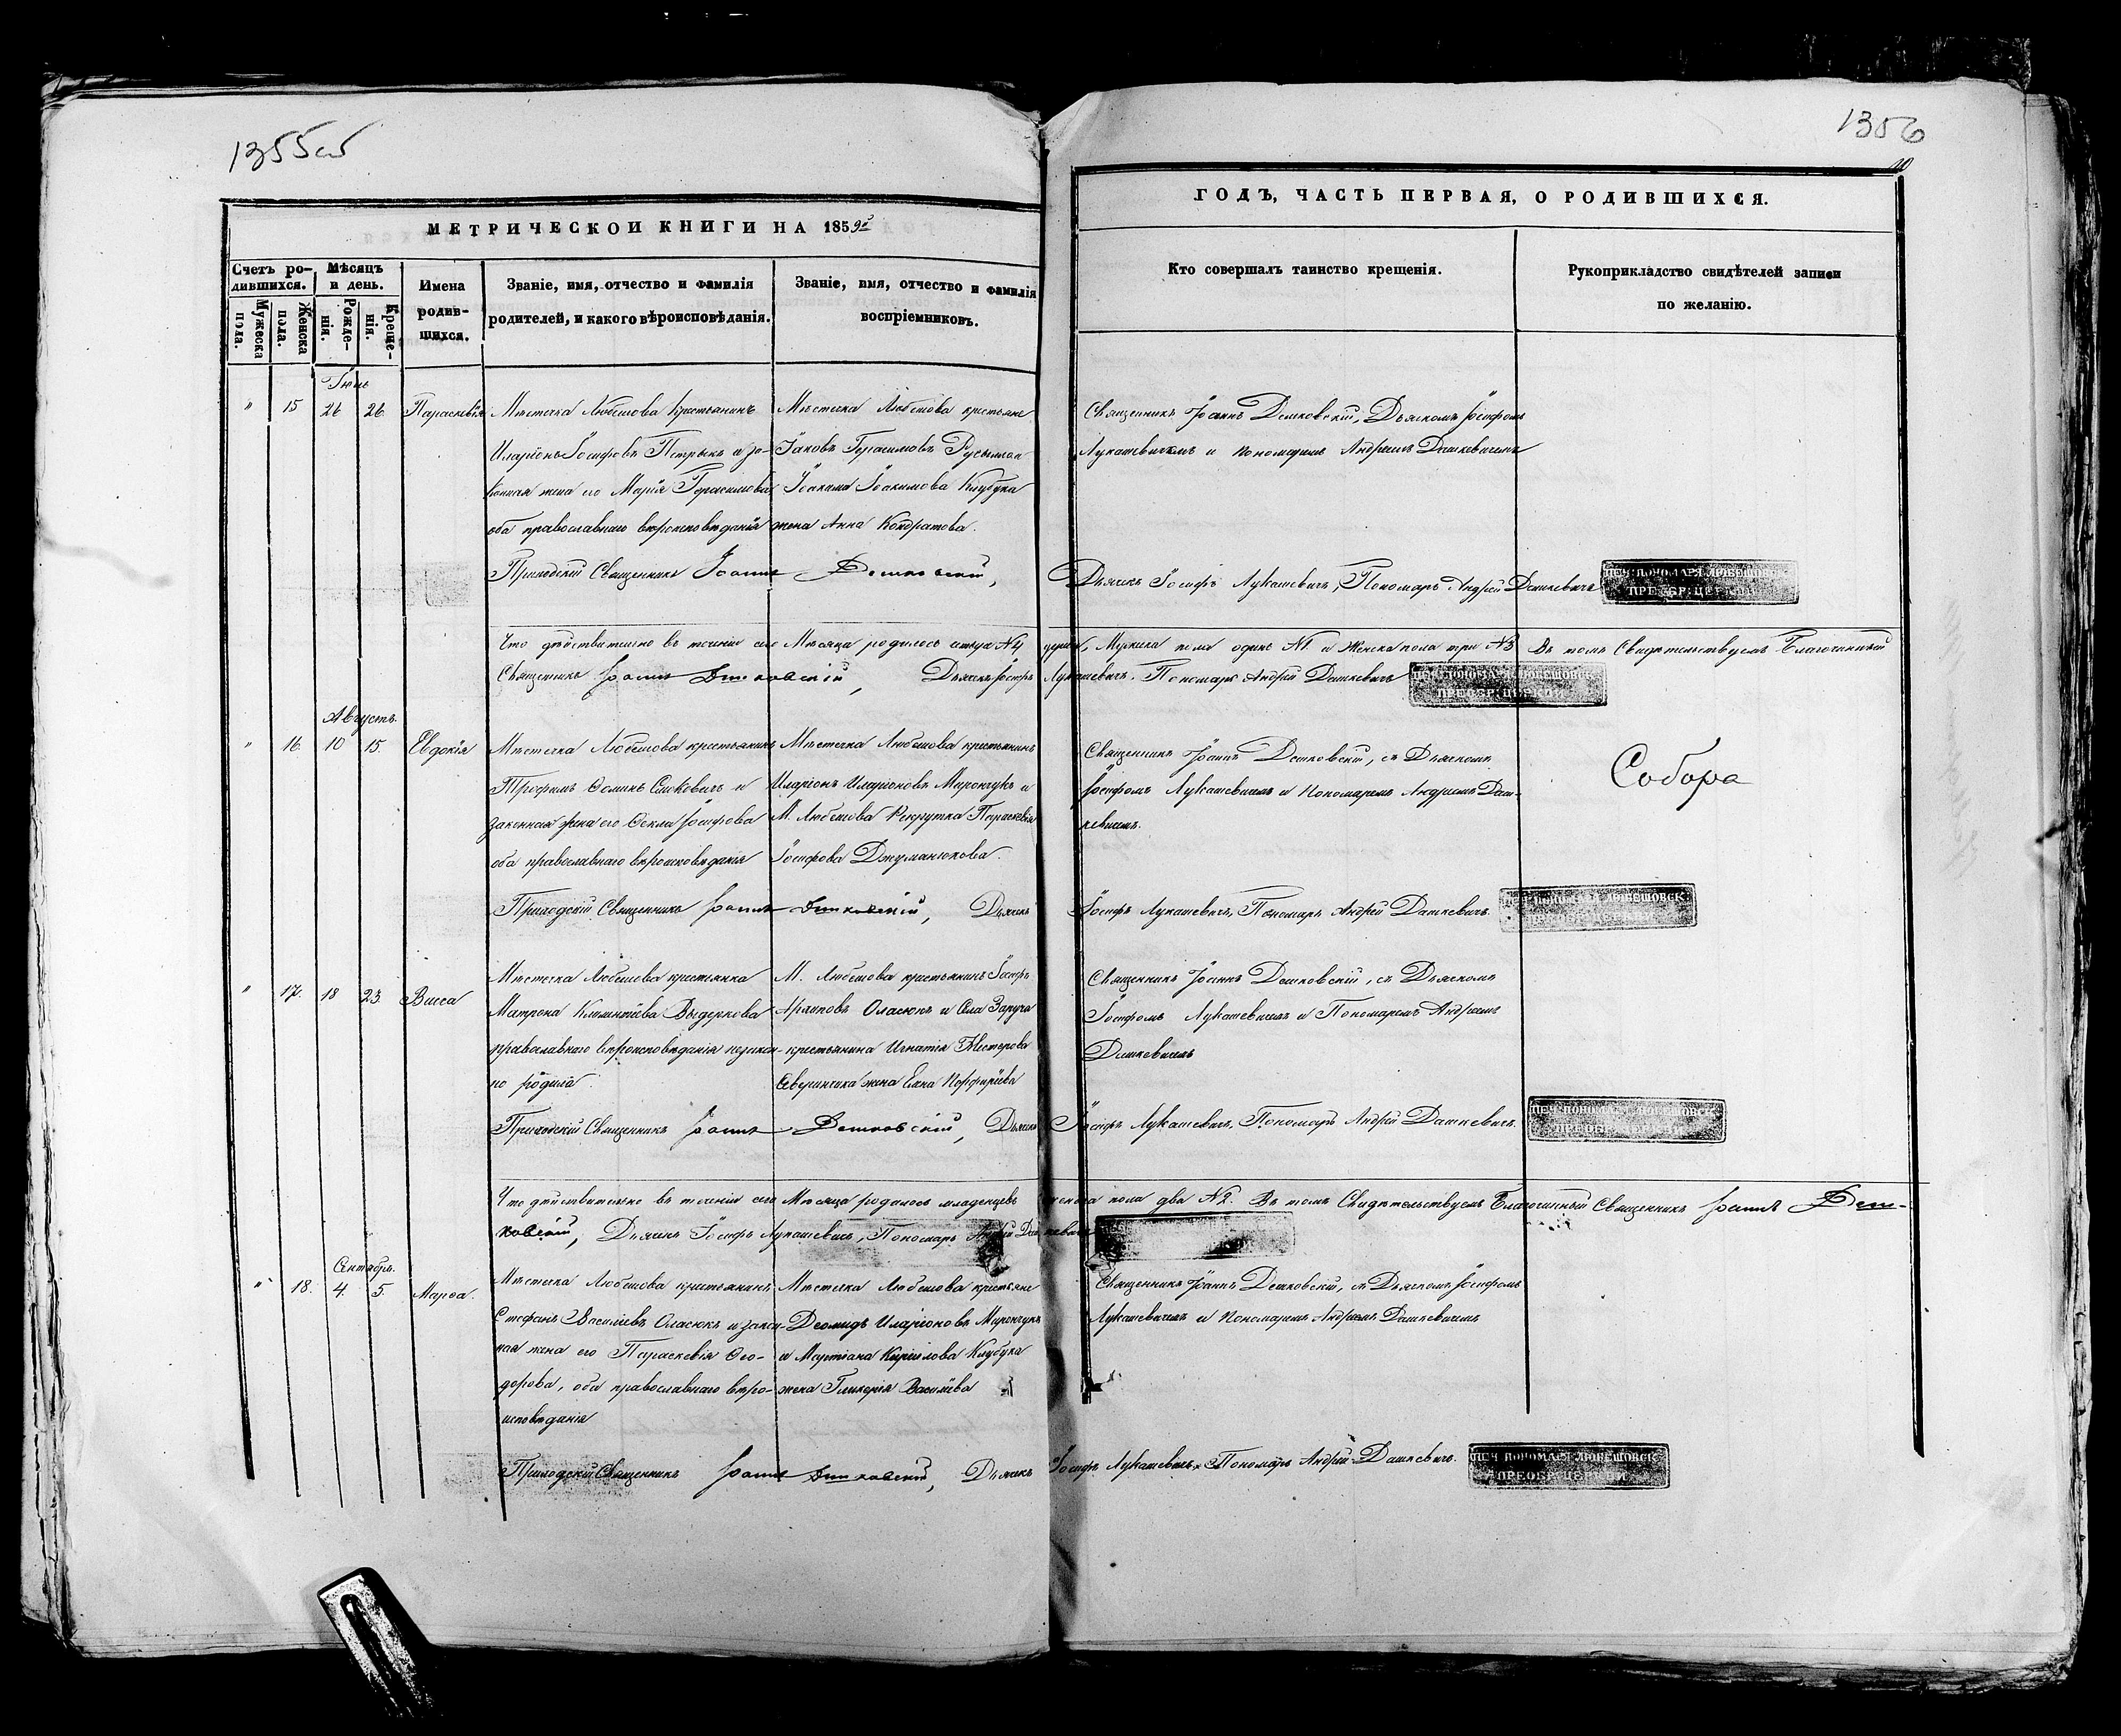 1355об
1356
МЕТРИЧЕСКОЙ КНИГИ НА 1859й
ГОДЪ, ЧАСТЬ ПЕРВАЯ, О РОДИВШИХСЯ.
Счетъ ро-
дившихся.
Мужеска
пола.
Женска
пола.
Мѣсяцъ
и день.
Рожде-
нія.
Креще-
нія.
Имена
родив-
шихся.
Званіе, имя, отчество и фамилія
родителей, и какого вѣроисповѣданія.
Званіе, имя, отчество и фамилія
воспріемниковъ.
Кто совершалъ таинство крещенія.
Рукоприкладство свидѣтелей записи
по желанію.
" 15 26 26 Параскевія
Мѣстечка Любешова крестьянинъ
Иларіонъ Іосифовъ Петрыкъ и за-
конная жена его Марія Герасимова
оба православнаго вѣроисповѣданія
Мѣстечка Любешова крестьяне
Іаковъ Герасимовъ
Іоакима Іоакимова Клубука
жена Анна Кондратова.
Священникъ Іоаннъ Демковскій, Дьячкомъ Іосифомъ
Лукашевичемъ и Пономаремъ Андреемъ Дашкевичемъ
Приходскій Священникъ Іоаннъ Демковскій, Дьячекъ Іосифъ Лукашевичъ, Пономарь Андрей Дашкевичъ
ПЕЧ. ПОНОМАРЯ ЛЮБЕШОВСК.
ПРЕОБР: ЦЕРКВИ
Что дѣйствительно въ теченіи сего Мѣсяца родилось четыре №4 души, Мужеска пола одинъ №1 и Женска пола три №3 Въ томъ Свидѣтельствуемъ Благочинный
Священникъ Іоаннъ Демковскій, Дьячекъ Іосифъ Лукашевичъ, Пономарь Андрей Дашкевичъ
ПЕЧ. ПОНОМАРЯ ЛЮБЕШОВСК.
ПРЕОБР: ЦЕРКВИ
Августъ.
" 16. 10 15. Евдокія
Мѣстечка Любешова крестьянинъ
Трофимъ Ѳоминъ и
законная жена его Ѳекла Іосифова
оба православнаго вѣроисповѣданія
Мѣстечка Любешова крестьянинъ
Иларіонъ Иларіоновъ Мирончукъ и
М. Любешова Рекрутка Параскевія
Іосифова Джуманюкова.
Священникъ Іоаннъ Демковскій, съ Дьячкомъ
Іосифомъ Лукашевичемъ и Пономаремъ Андреемъ Даш-
кевичемъ.
Собора
Приходскій Священникъ Іоаннъ Демковскій, Дьячекъ Іосифъ Лукашевичъ, Пономарь Андрей Дашкевичъ.
ПЕЧ. ПОНОМАРЯ ЛЮБЕШОВСК.
ПРЕОБР: ЦЕРКВИ
" 17. 18 23 Васса
Мѣстечка Любешова крестьянка
Матрона Климентіева Выдеркова
православнаго вѣроисповѣданія незакон-
но родила
М. Любешова крестьянинъ Іосифъ
Оласюкъ и Села Заруча
крестьянина Игнатія Нестерова
Аверинчика жена Евна Порфиріева
Священникъ Іоаннъ Демковскій, съ Дьячкомъ
Іосифомъ Лукашевичемъ и Пономаремъ Андреемъ
Дашкевичемъ
Приходскій Священникъ Іоаннъ Демковскій, Дьячекъ Іосифъ Лукашевичъ, Пономарь Андрей Дашкевичъ.
ПЕЧ. ПОНОМАРЯ ЛЮБЕШОВСК.
ПРЕОБР: ЦЕРКВИ
Что дѣйствительно въ теченіи сего Мѣсяца родилось младенцевъ женска пола два №2. Въ томъ Свидѣтельствуемъ Благочинный Священникъ Іоаннъ Дем-
ковскій, Дьячекъ Іосифъ Лукашевичъ, Пономарь Андрей Дашкевичъ
Сентябрь.
" 18. 4. 5. Марѳа.
Мѣстечка Любешова крестьянинъ
Стефанъ Василіевъ Оласюкъ и закон-
ная жена его Параскевія Ѳео-
дорова, оба православнаго вѣро-
исповѣданія
Мѣстечка Любешова крестьяне
Деомидъ Иларіоновъ Мирончукъ
и Мартіана Кирилова Клубука
жена Гликерія Василіева
Священникъ Іоаннъ Демковскій, съ Дьячкомъ Іосифомъ
Лукашевичемъ и Пономаремъ Андреемъ Дашкевичемъ
Приходскій Священникъ Іоаннъ Демковскій, Дьячекъ Іосифъ Лукашевичъ, Пономарь Андрей Дашкевичъ.
ПЕЧ. ПОНОМАРЯ ЛЮБЕШОВСК.
ПРЕОБР: ЦЕРКВИ